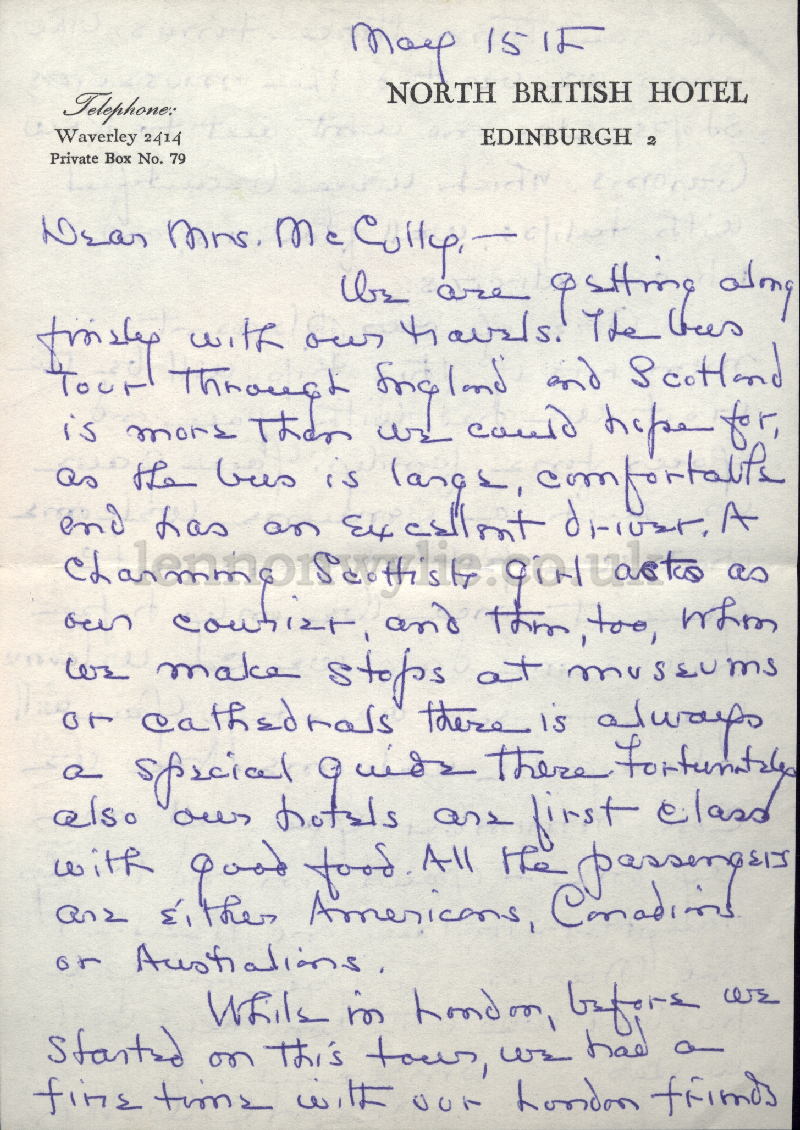 May 15th
NORTH BRITISH HOTEL
EDINBURGH 2
Telephone:
Waverley 2414
Private Box No. 79
Dear Mrs. McCully, —
We are getting along
finely with our travels. The bus
tour through England and Scotland
is more than we could hope for,
as the bus is large, comfortable
and has an excellent driver. A
charming Scottish girl acts as
our courier, and then, too, when
we make stops at museums
or cathedrals there is always
a special guide there. Fortunately
also our hotels are first class
with good food. All the passengers
are either Americans, Canadians
or Australians.
While in London, before we
started on this tour, we had a
fine time with our London friends
lennonwylie.co.uk